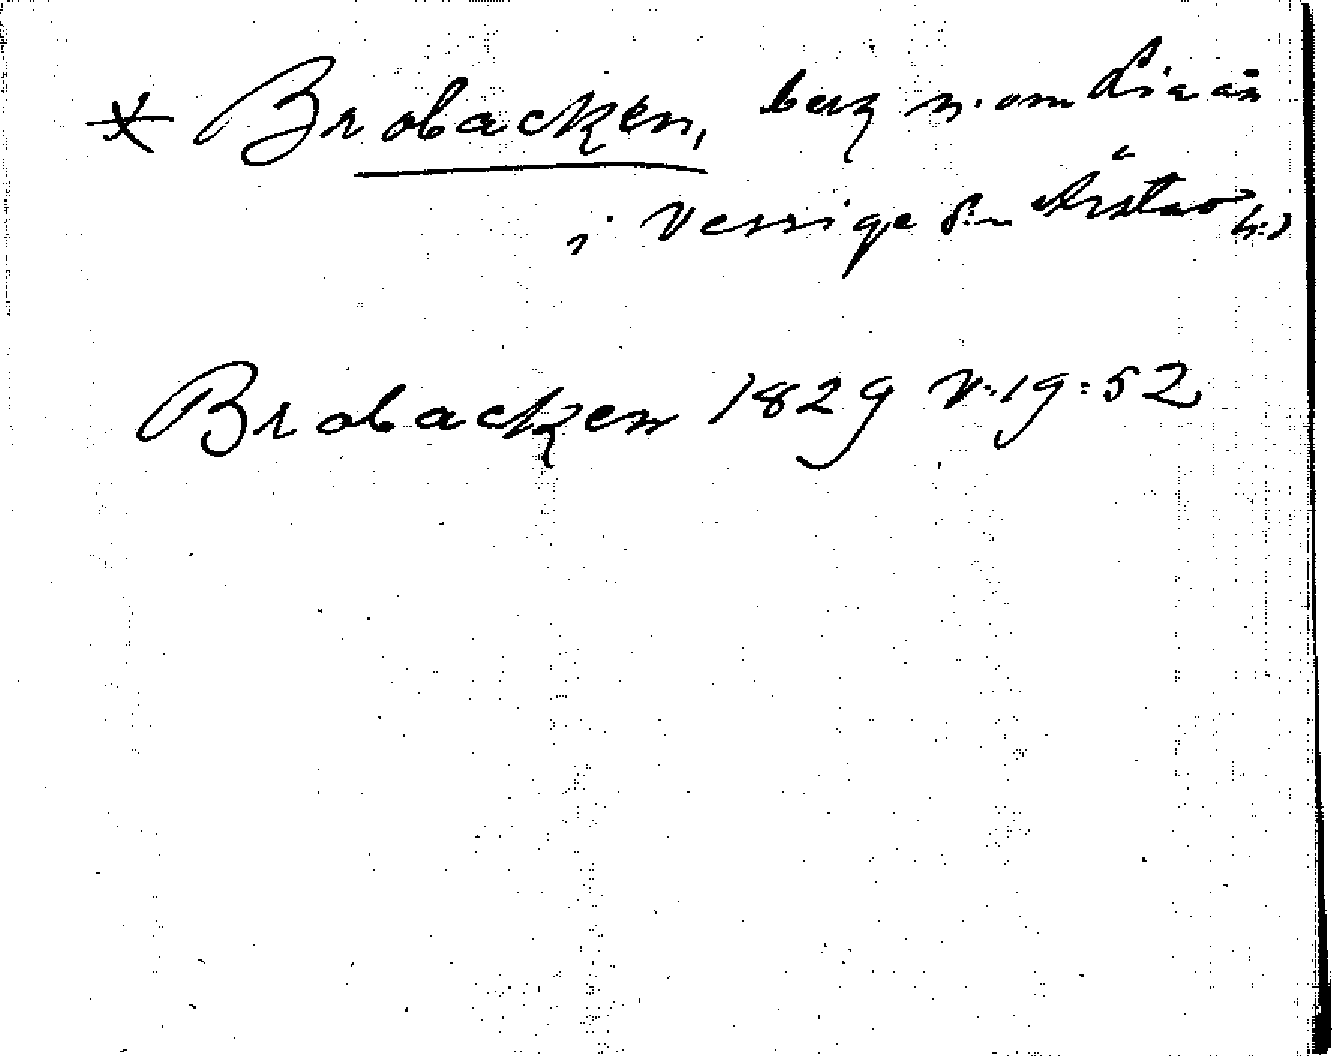 * Brobacken, berg n. om Liaån
i Verrige s:n Årstad h:d
Brobacken 1829 V. 19:52